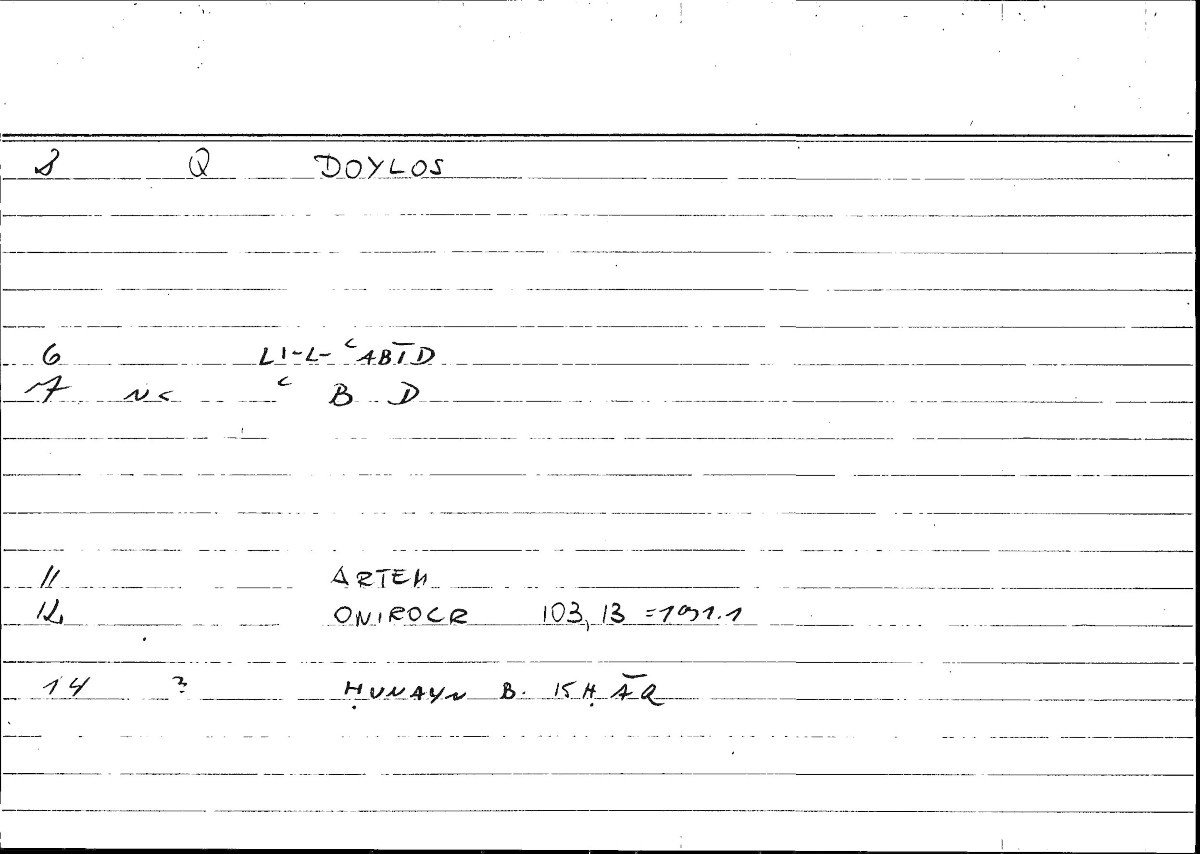 8 Q DOYLOS
6 LI-L-ʿABĪD
7 N< ʿ B D
11 ARTEM
12 ONIROCR 103, 13 = 191.1
14 ? ḤUNAYN B. ISḤĀQ